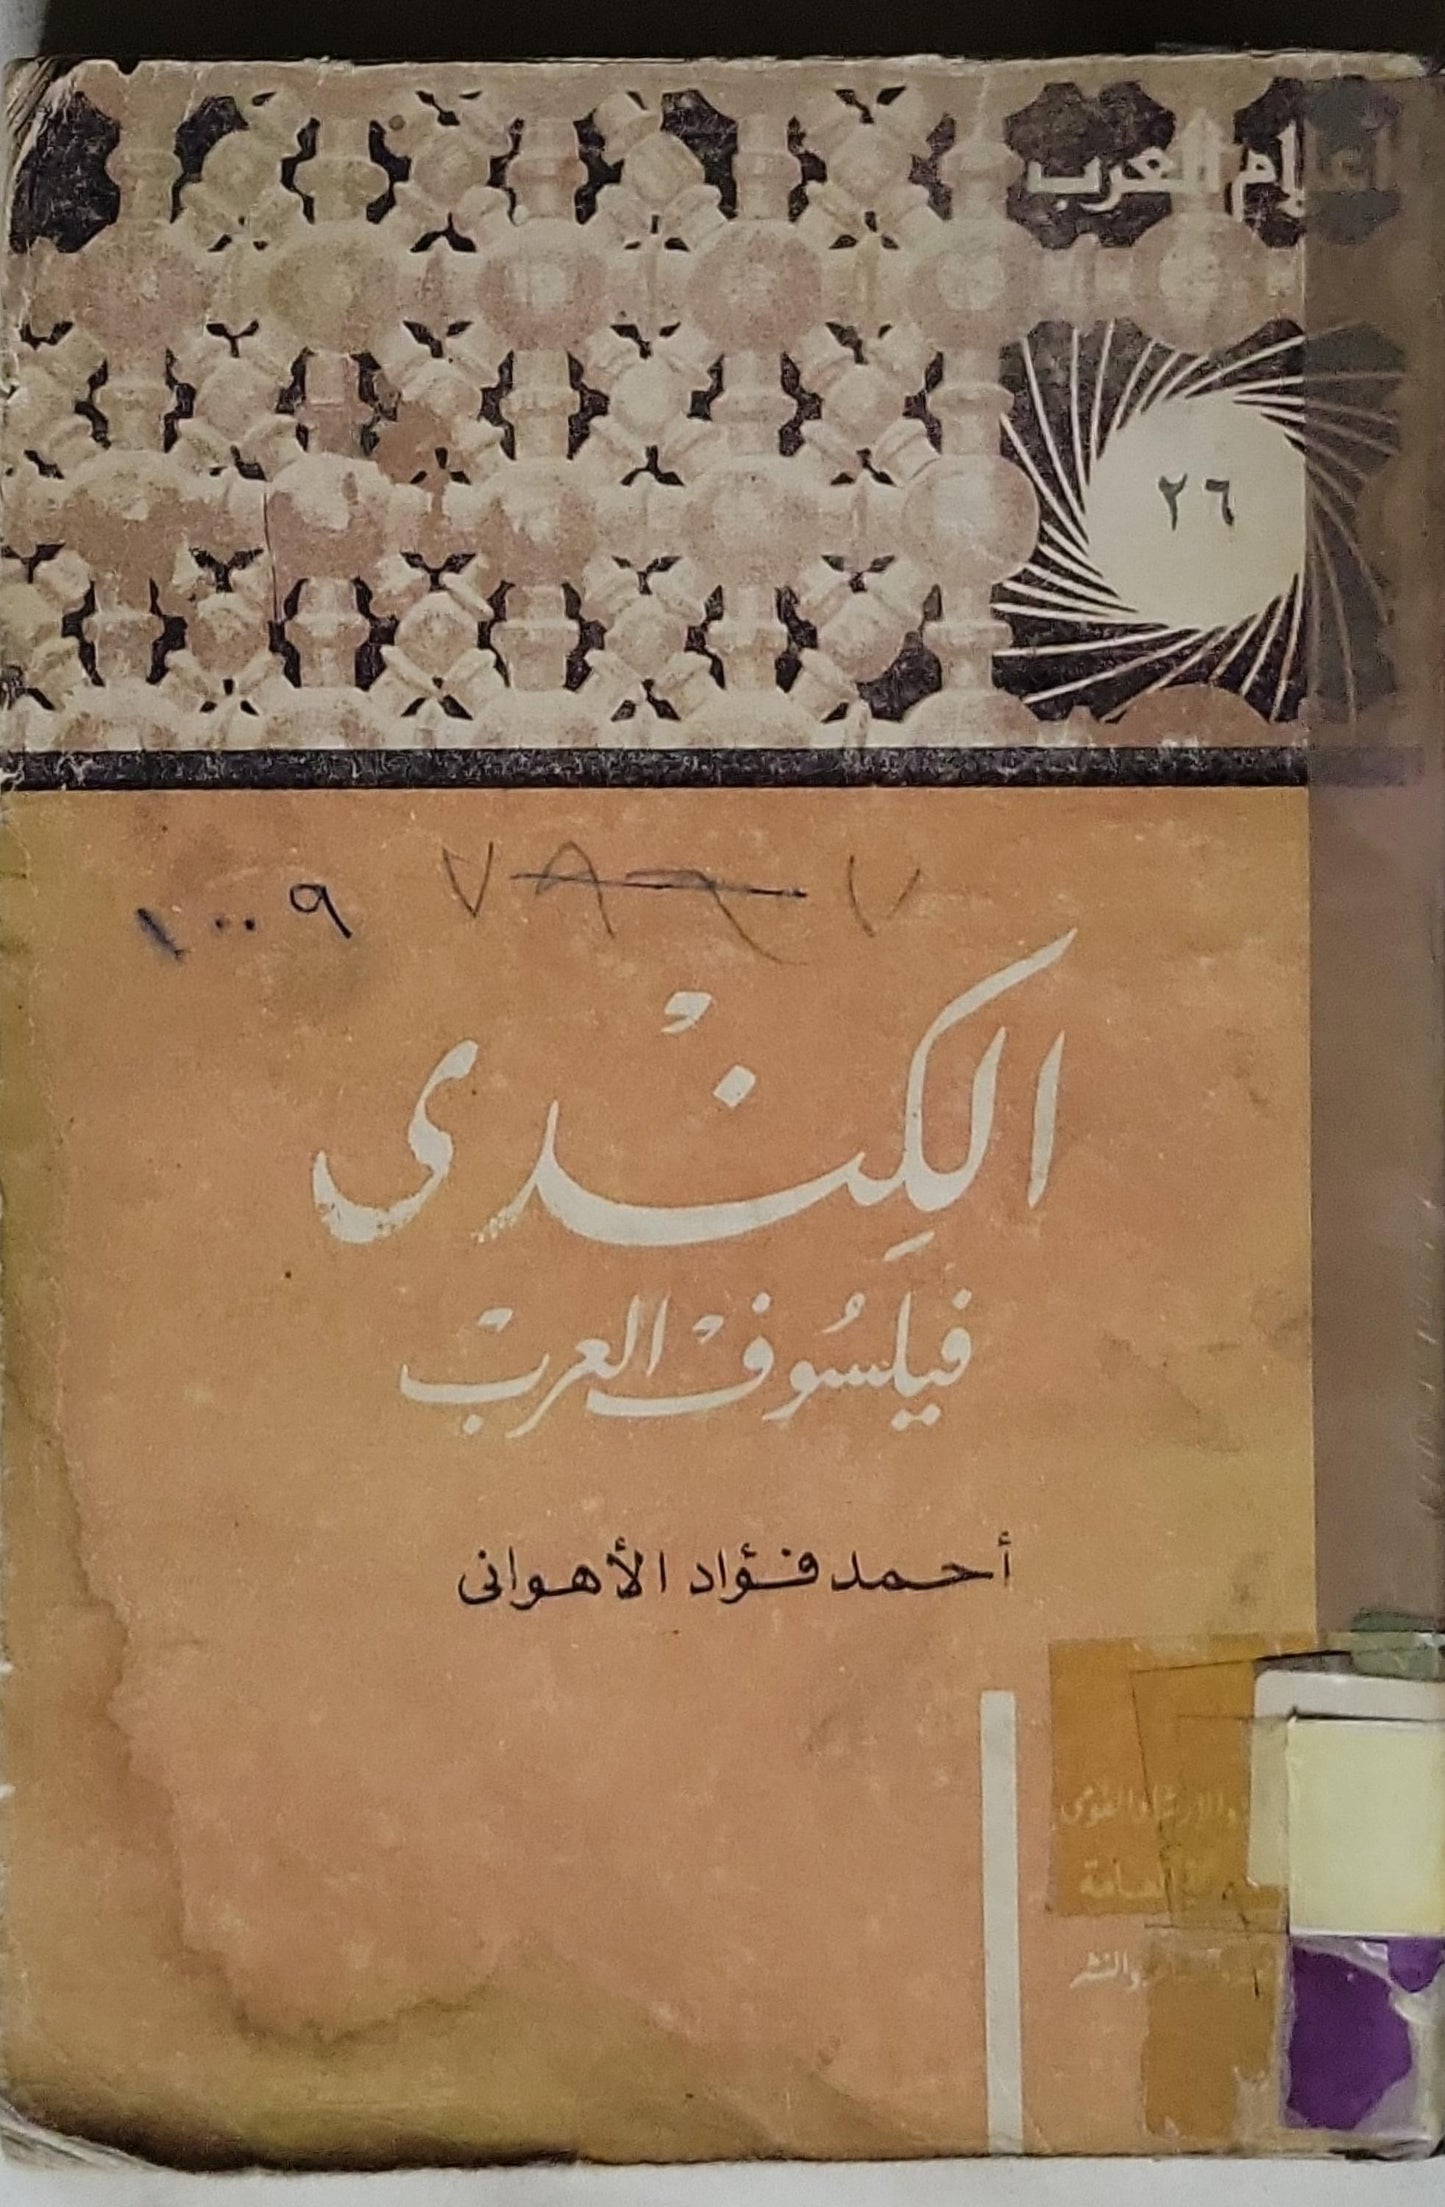 أعلام العرب
٢٦
١٠٠٩
الكِنْدى
فيلسُوفْ العربْ
أحمد فؤاد الأهوانى
والإرشاد القومى
العامة
والنشر